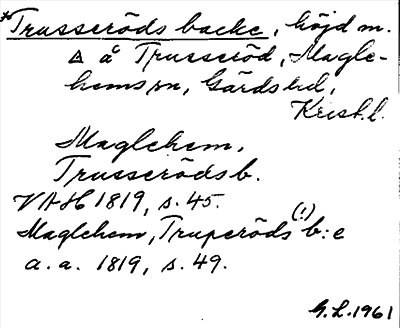 *Trusseröds backe, höjd m.
△ å Trusseröd, Magle-
hems sn, Gärds hd,
Krist. l.
Maglehem,
Trusserödsb.
VAH 1819, s. 45.
Maglehem, Truperöds (!) b:e
a. a. 1819, s. 49.
G. L. 1961